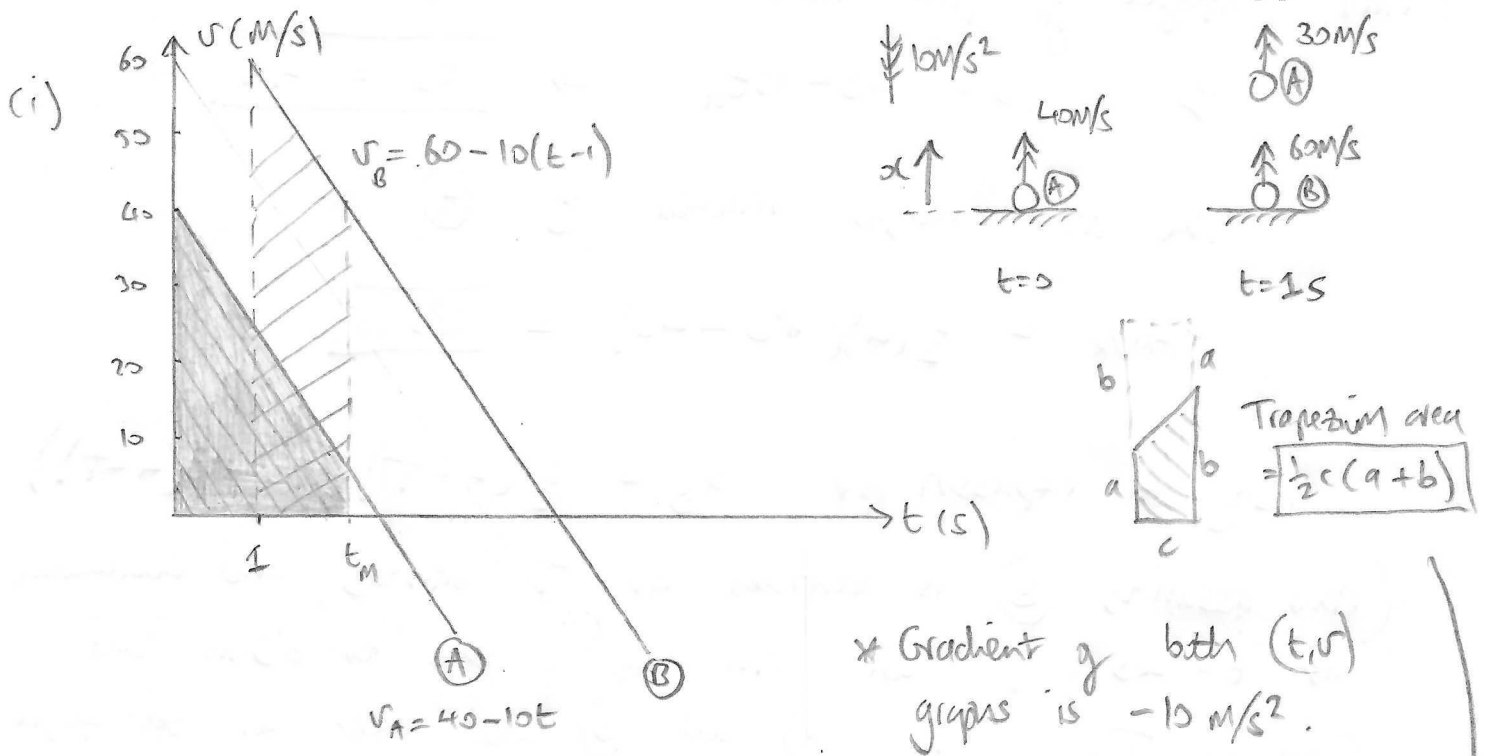 (i)
v (m/s)
60
50
40
30
20
10
v_B = 60 - 10(t-1)
1
t_M
t (s)
A
B
v_A = 40 - 10t
10m/s²
x
40m/s
A
t=0
30m/s
A
60m/s
B
t=1s
b
a
a
b
c
Trapezium area
= ½c(a+b)
* Gradient of both (t,v)
graphs is -10 m/s².